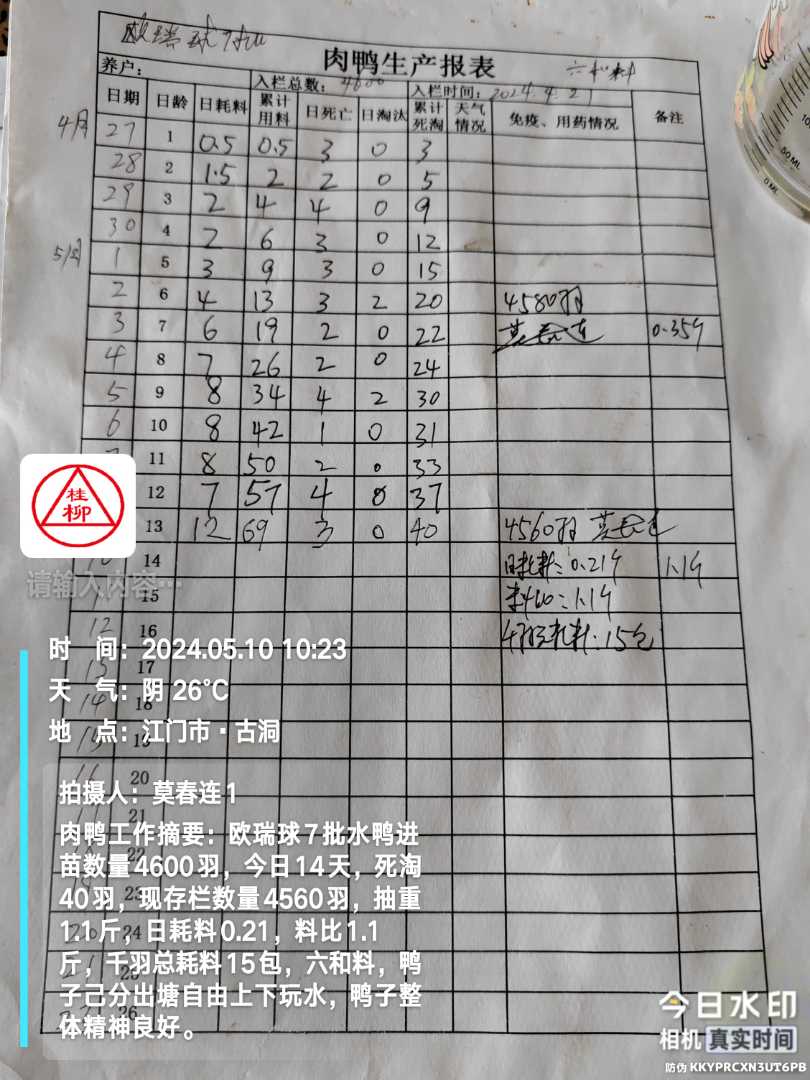 欧瑞球 7批
肉鸭生产报表
六和料
养户： 入栏总数：4600 入栏时间：2024.4.27
日期 日龄 日耗料 累计用料 日死亡 日淘汰 累计死淘 天气情况 免疫、用药情况 备注
4月 27 1 0.5 0.5 3 0 3
28 2 1.5 2 2 0 5
29 3 2 4 4 0 9
30 4 2 6 3 0 12
5月 1 5 3 9 3 0 15
2 6 4 13 3 2 20 4580羽
3 7 6 19 2 0 22 莫春连 0.35斤
4 8 7 26 2 0 24
5 9 8 34 4 2 30
6 10 8 42 1 0 31
7 11 8 50 2 0 33
12 7 57 4 0 37
13 12 69 3 0 40 4560羽 莫春连
10 14 日耗料：0.21斤 1.1斤
11 15 1.1斤
12 16 千羽耗料：15包
13 17
14 18
15 19
16 20
21
22
23
24
25
26
桂柳
请输入内容…
时 间：2024.05.10 10:23
天 气：阴 26℃
地 点：江门市·古洞
拍摄人：莫春连1
肉鸭工作摘要：欧瑞球7批水鸭进
苗数量4600羽，今日14天，死淘
40羽，现存栏数量4560羽，抽重
1.1斤，日耗料0.21，料比1.1
斤，千羽总耗料15包，六和料，鸭
子己分出塘自由上下玩水，鸭子整
体精神良好。
50 ML
0 ML
今日水印
相机 真实时间
防伪 KKYPRCXN3UT6PB